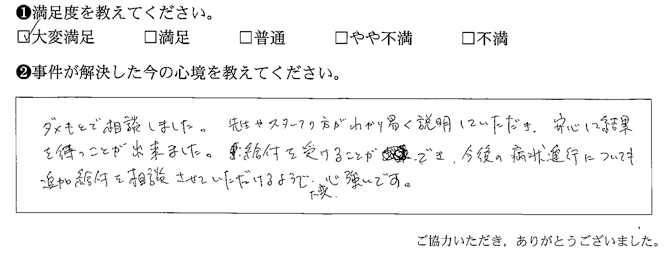 ❶満足度を教えてください。
☑大変満足 □満足 □普通 □やや不満 □不満
❷事件が解決した今の心境を教えてください。
ダメもとで相談しました。先生やスタッフの方がわかり易く説明していただき、安心して結果
を待つことが出来ました。給付を受けることができ、今後の病状進行についても
追加給付を相談させていただけるようで、大変心強いです。
ご協力いただき，ありがとうございました。